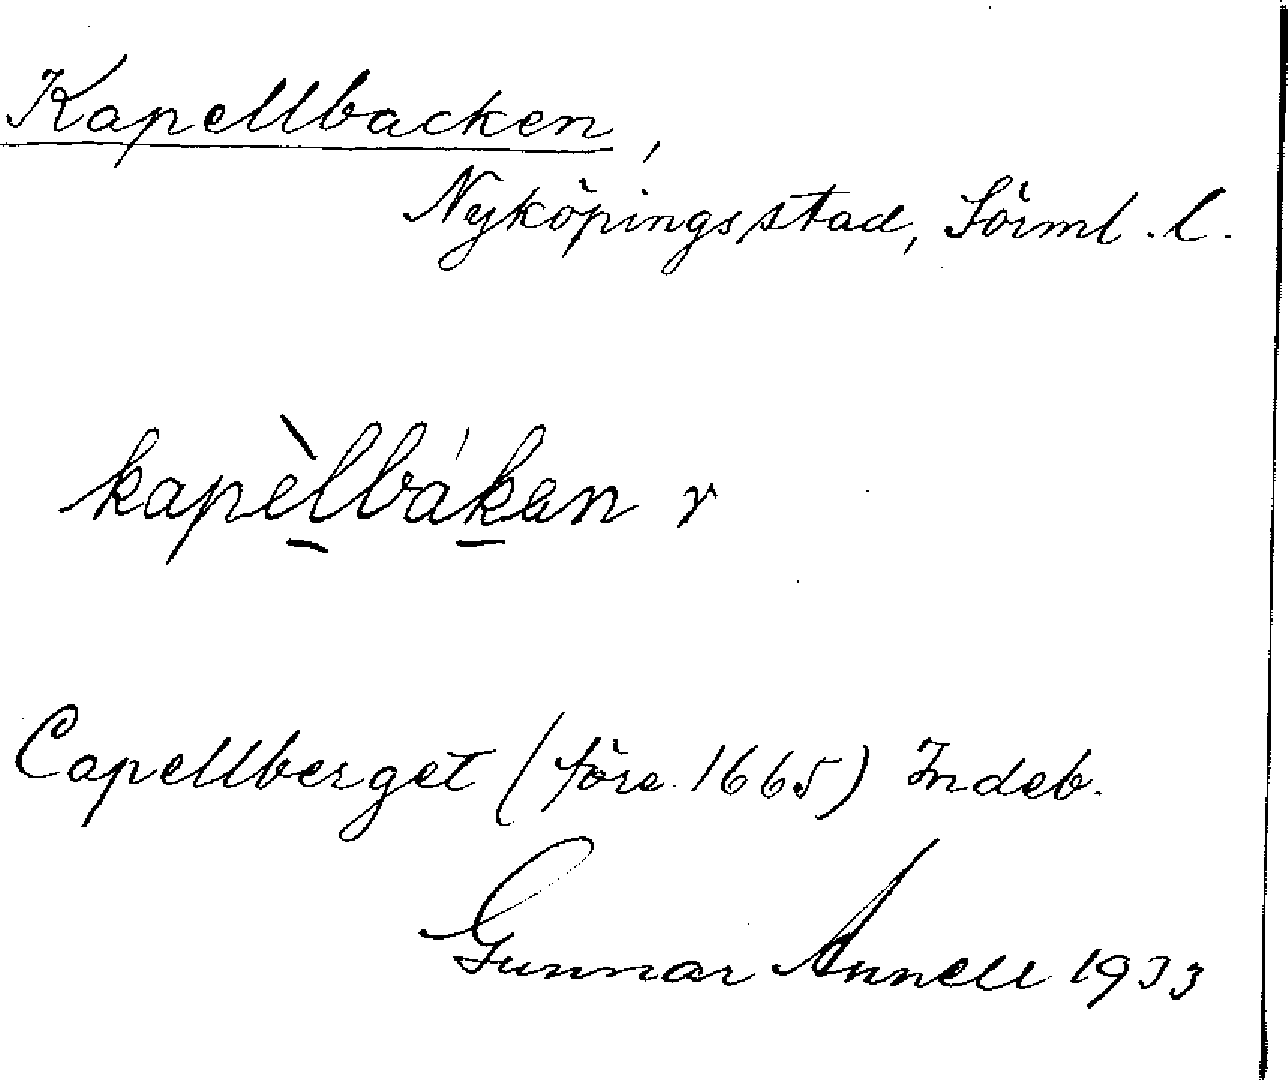 Kapellbacken,
Nyköpings stad, Sörml. l.
kapèl̲bák̲en r
Capellberget (före 1665) Indeb.
Gunnar Annell 1933